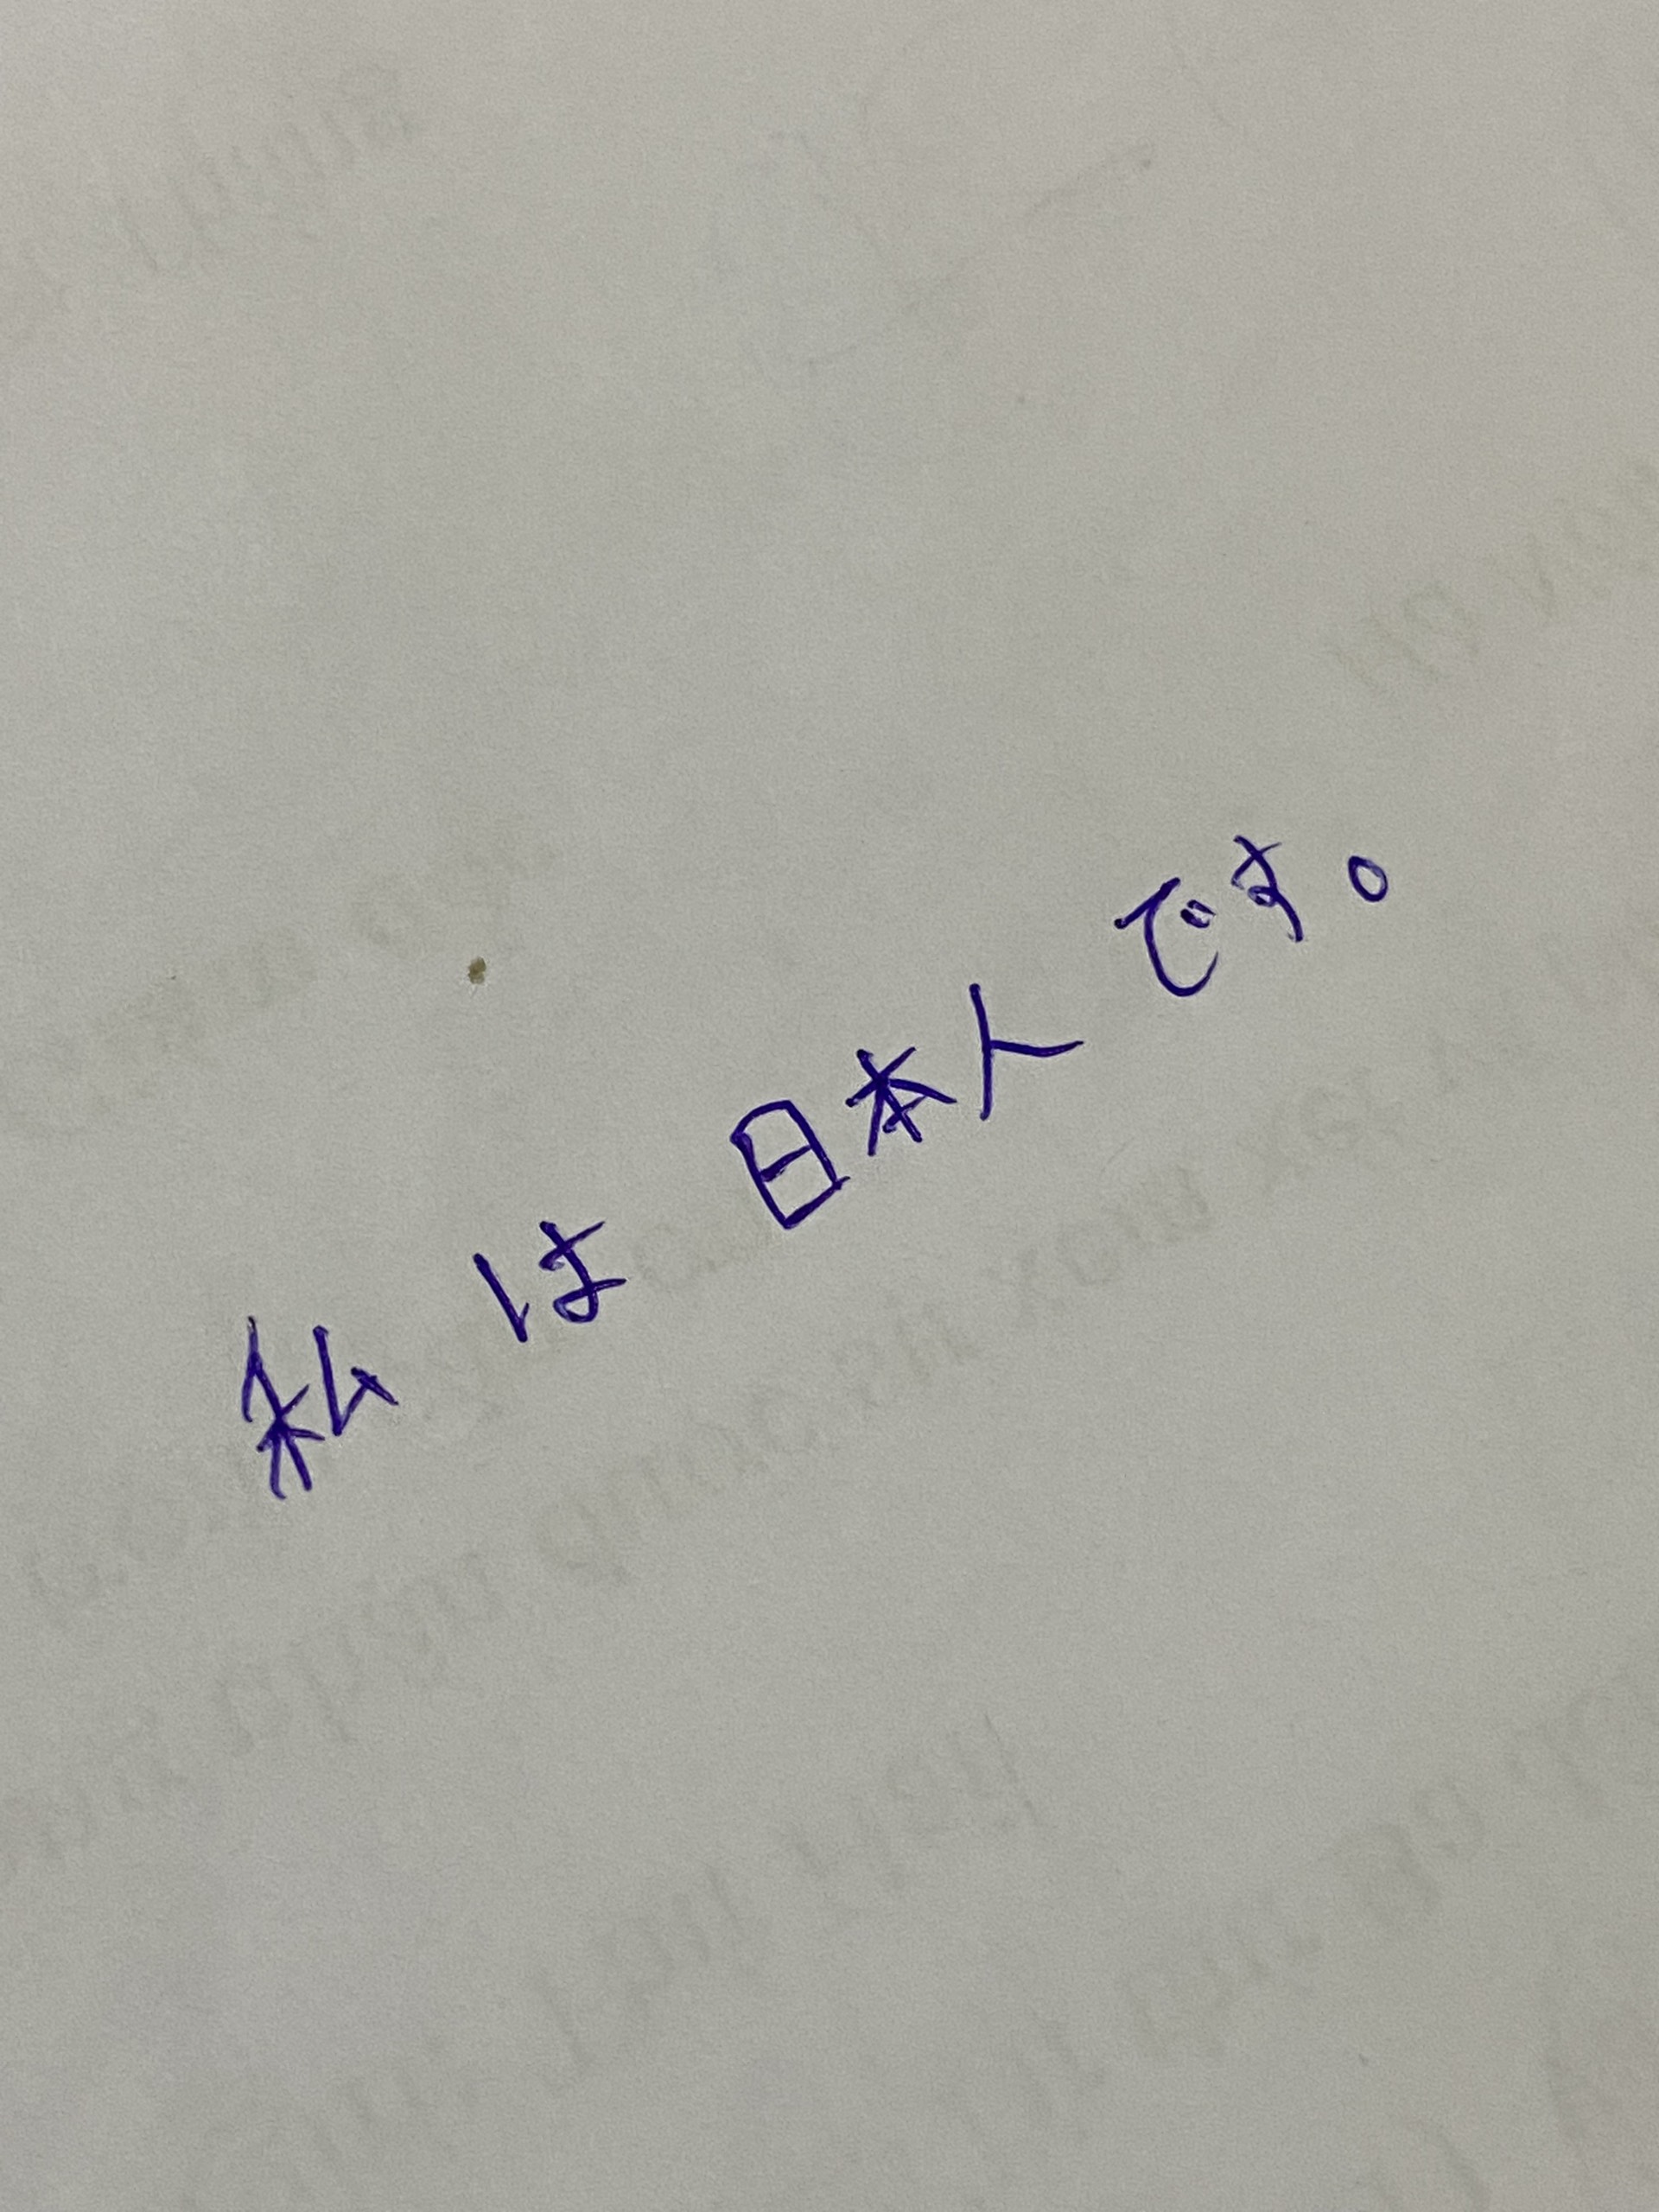 私は日本人です。